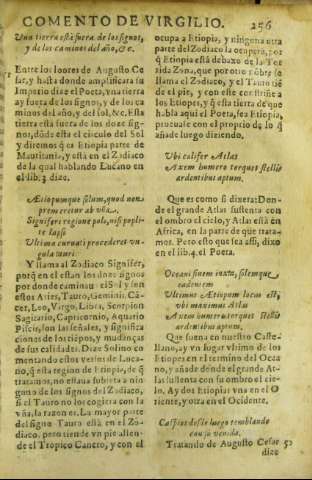 COMENTO DE VIRGILIO. 256
Una tierra està fuera de los signos,
y de los caminos del año, &c.
Entre los loores de Augusto Ce
sar, y hasta donde amplificara su
Imperio dize el Poeta, vna tierra
ay fuera de los signos, y de los ca
minos del año, y del Sol, &c. Esta
tierra està fuera de los doze sig-
nos, dõde esta el circulo del Sol
y diremos q̃ es Etiopia parte de
Mauritania, y està en el Zodiaco
de la qual hablando Lucano en
el lib.3 dize.
Aetiopumque solum, quod non
premeretur ab vlla,
Signiferi regione poli, nisi popli-
te lapso
Ultima curuati procederet vn-
gula tauri
Y llama al Zodiaco Signifer,
porq̃ en el estan los doze signos
por donde caminau el Sol y son
estos Aries, Tauro, Geminis, Cá-
cer, Leo, Virgo, Libra, Scorpion
Sagitario, Capricornio, Aquario
Piscis, son las señales, y significa
ciones de los tiẽpos, y mudanças
de sus calidades. Dize Solino co
mentando estos versos de Luca-
no, q̃ esta region de Etiopia, de q̃
tratamos, no estaua subiecta a nin
guno de los signos del Zodiaco,
si el Tauro no los cogiera con la
vña, la razon es. La mayor parte
del signo Tauro està en el Zo-
diaco, pero tiende vn pie allen-
de el Tropico Cancro, y con el
ocupa a Etiopia, y ninguna otra
parte del Zodiaco la ocupera, por
q̃ Etiopia està debaxo de la Tor
rida Zona, que por otro nõbre se
llama el Zodiaco, y el Tauro tié
de el pie, y con este constriñe a
los Etiopes, y q̃ esta tierra de que
habla aqui el Poeta, sea Etiopia,
prueuase con el proprio de lo q̃
añade luego diziendo.
Ubi califer Atlas
Axem humero torquet stellis
ardentibus aptum.
Que es como si dixera: Don-
de el grande Atlas sustenta con
el ombro el cielo, y Atlas està en
Africa, en la parte de que trata-
mos. Pero esto que sea assi, dixo
en el lib.4.el Poeta.
Oceani finem iuxta, solemque
cadentem
Ultimus Aetiopum locus est,
vbi maximus Atlas
Axem humero torquet stellis
ardentibus aptum,
Que suena en nuestro Caste-
llano, ay vn lugar vltimo de los
Etiopes en el termino del Ocea
no, y añade donde el grande At-
las sustenta con su ombro el cie-
lo. Ay dos Etiopias vna en el O
riente, y otra en el Occidente.
Caspios desde luego temblando
con su venida.
Tratando de Augusto Cesar
dize